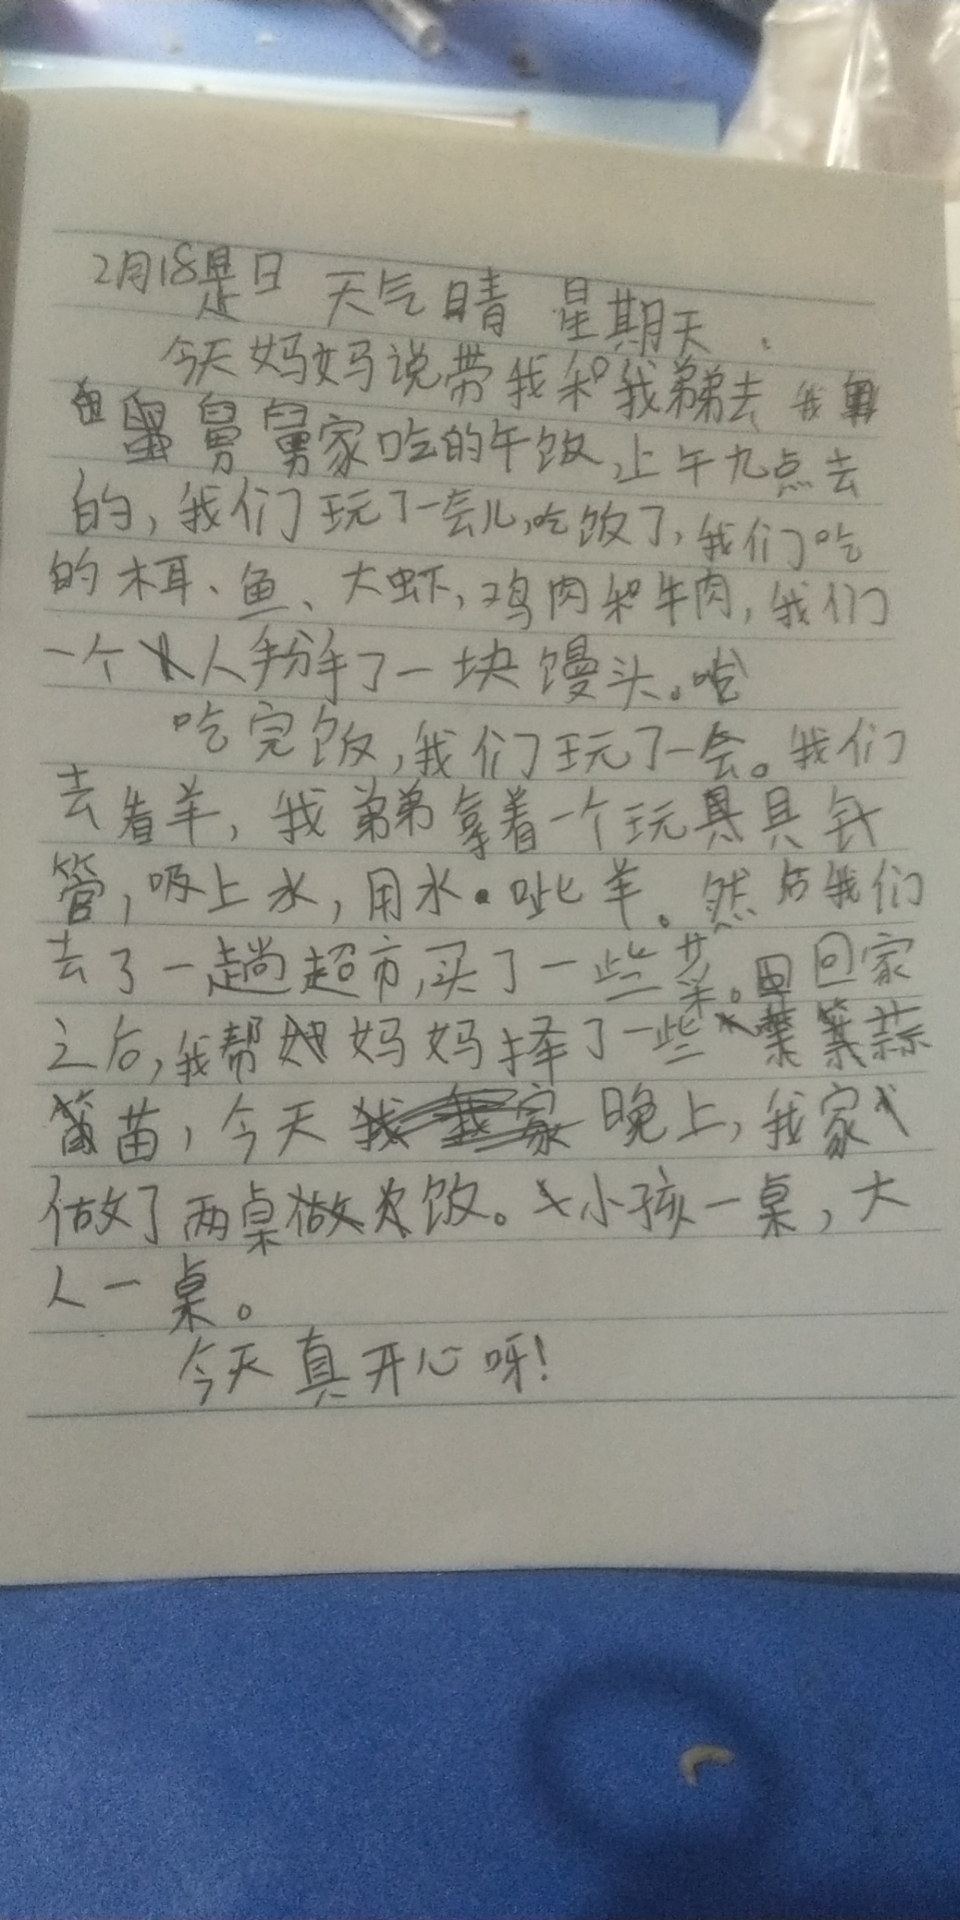 2月18是日 天气晴 星期天.
今天妈妈说带我和我弟弟去我
舅舅家吃的午饭,上午九点去
的,我们玩了一会儿,吃饭了,我们吃
的木耳、鱼、大虾,鸡肉和牛肉,我们
一个人掰了一块馒头。
吃完饭,我们玩了一会。我们
去看羊,我弟弟拿着一个玩具具针
管,吸上水,用水呲羊。然后我们
去了一趟超市,买了一些菜。回家
之后,我帮妈妈择了一些蒜
苗,今天晚上,我家
做了两桌饭。小孩一桌,大
人一桌。
今天真开心呀!